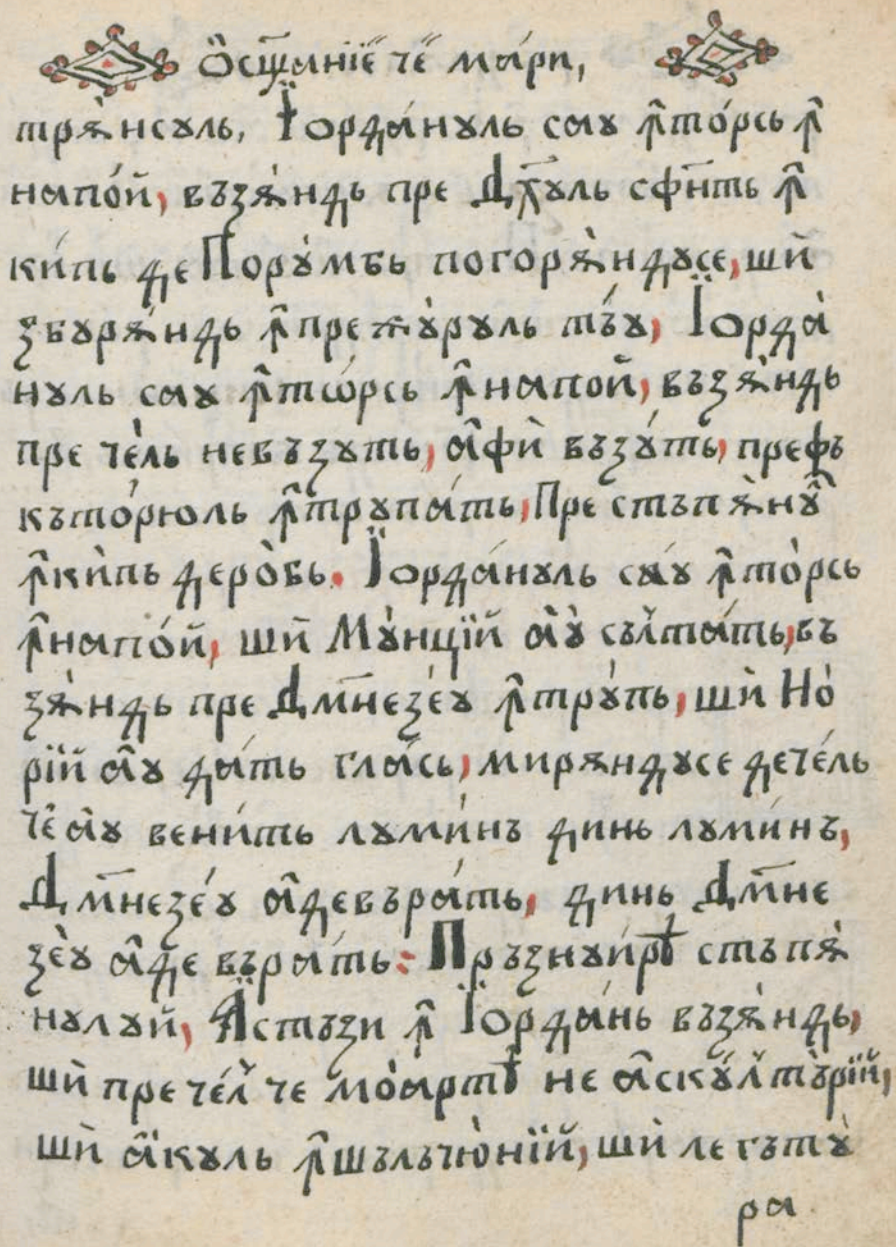 Ѻ҆сщ҃анїе че́ ма́ри,
трѫ́нсꙋль, Їѻрда́нꙋль саꙋ ꙟ҆то́рсь ꙟ҆
напо́й, въѕѫ́ндь пре Дх҃ꙋль сфн҃ть ꙟ҆
ки́пь де Порꙋ́мбь погорѫ́ндꙋсе, шѝ
ѕбꙋрѫ́ндь ꙟ҆прежꙋ́рꙋль тъ́ꙋ, Їѻрда́
нꙋль саꙋ ꙟ҆тѡ́рсь ꙟ҆напой, въѕѫ́ндь
пре че́ль невъѕꙋть, а҆фѝ въѕꙋ́ть, префъ
къто́рюль ꙟ҆трꙋпа́ть, Пре стъпѫ́нꙋ̑
ꙟ҆ки́пь деро́бь. Їѻрда́нꙋль са́ꙋ ꙟ҆то́рсь
ꙟ҆напо́й, шѝ Мꙋ́нцїй а҆ꙋ̀ сълта́ть, въ
ѕѫ́ндь пре Дм҃незе́ꙋ ꙟ҆трꙋ́пь, шѝ Но́
рїй а҆ꙋ да́ть гла́сь, мирѫндꙋсе дече́ль
че́ а҆ꙋ вени́ть лꙋми́нъ динь лꙋми́нъ,
Дм҃незе́ꙋ а҆девъра́ть, динь Дм҃не
зе́ꙋ а҆де въра́ть: Пръѕнꙋи́рѣ стъпѫ́
нꙋлꙋй, А҆стъѕи ꙟ҆ Їѻрда́нь въѕѫ́ндь,
шѝ пре че́л че мо́артѣ не а҆скꙋ́лтърїй,
шѝ а҆кꙋль ꙟ҆шълъчю́нїй, шѝ легътꙋ̀
ра